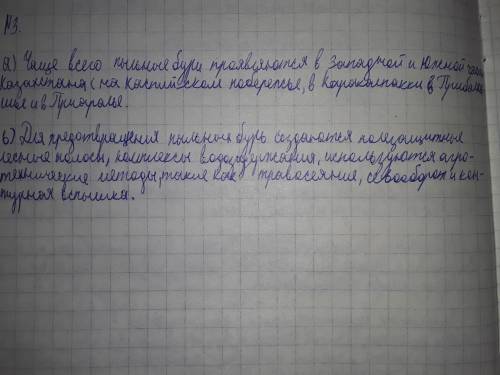 №3.
а) Чаще всего пыльные бури проявляются в Западной и Южной части
Казахстана (на Каспийском побережье, в Каракалпакии в Прибалха-
шье и в Приаралье.
б) Для предотвращения пыльных бурь создаются полезащитные
лесные полосы, комплексы водозадержания, используются агро-
технические методы, такие как травосеяние, севооборот и кон-
турная вспышка.